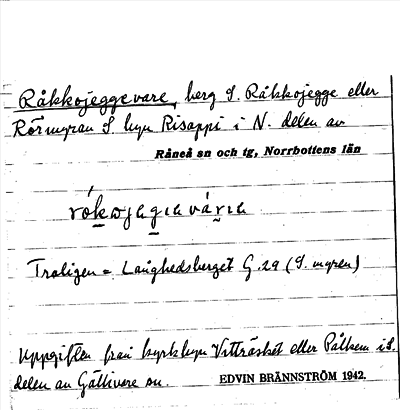 Råkkojeggevare, berg S. Råkkojegge eller
Rörmyran S. byn Risappi i N. delen av
Råneå sn och tg, Norrbottens län
rókωjegιa váрιa
Troligen = Långhedsberget G. 29 (S. myren)
Uppgiften från byrkbyn Vitträsket eller Pålkem i S.
delen av Gällivare sn. EDVIN BRÄNNSTRÖM 1942.